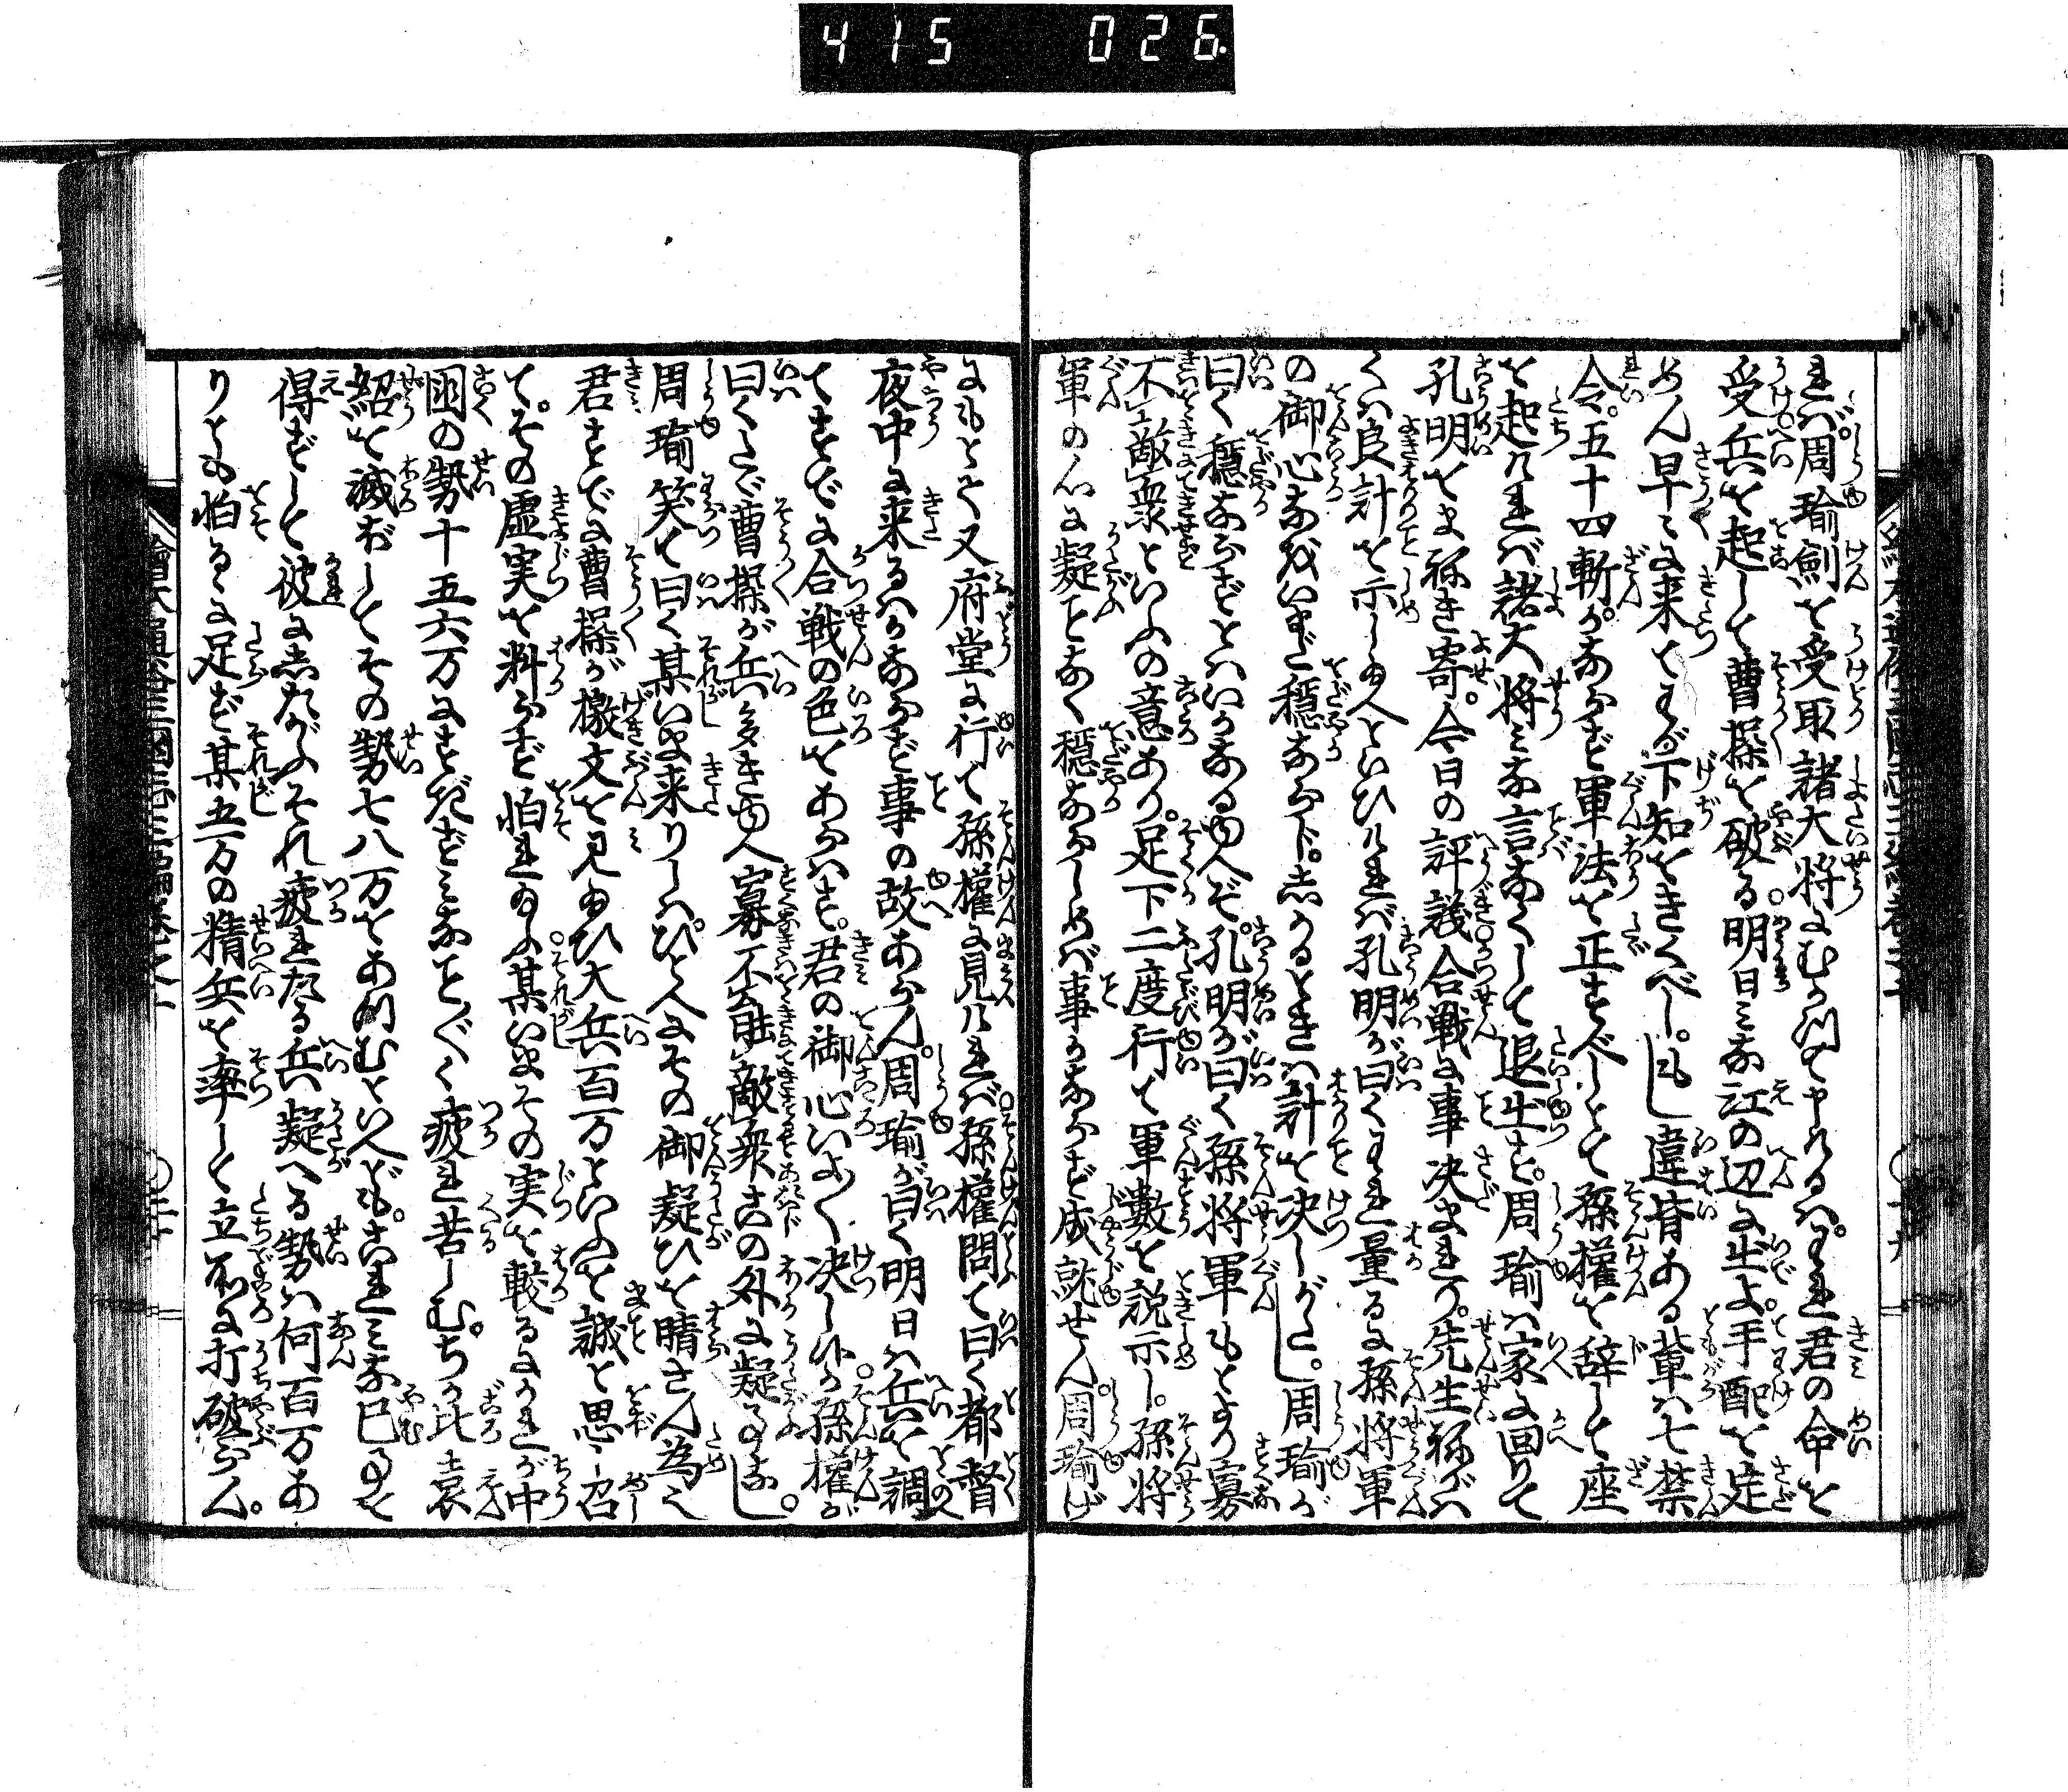 415 026.
れば。周瑜剣を受取諸大将にむかつて申けるハ。われ君の命を
受兵を起して曹操を破る。明日ミな江の辺に出よ。手配を定
めん早々に来つてわが下知をきくべし。もし違背ある輩ハ七禁
令。五十四斬がならず軍法を正すべしとて孫権を辞して座
を起けれバ諸大将ミな言なくして退出す。周瑜ハ家に回りて
孔明をまねき寄。今日の評議合戦に事決まれり。先生ねがハ
くハ良計を示し給へといひけれバ孔明が曰くわれ量るに孫将軍
の御心なほいまだ穏ならず。しかるときハ計を決しがたし。周瑜が
曰く穏ならずとハいかなるゆへぞ。孔明が曰く孫将軍もとより寡
不敵衆といふの意あり。足下二度行て軍数を説示し。孫将
軍の心に疑となく穏ならしめバ事かならず成就せん。周瑜げ
にもとて又府堂に行て孫権に見けれバ。孫権問て曰く都督
夜中に来るハかならず事の故あらん。周瑜が曰く明日ハ兵を調
てすでに合戦の色をあらハす。君の御心いよ〳〵決しけるか。孫権が
曰くたゞ曹操が兵多きゆへ寡不能敵衆この外に疑ふ事なし。
周瑜笑て曰く某いま来りしハ。ひとへにその御疑ひを晴さん為也
君すでに曹操が檄文を見給ひ大兵百万といふを誠と思召
て。その虚実を料らず怕れ給ふ某いまその実を較るにかれが中
国の勢十五六万にすぎずミなこと〴〵く疲れ苦しむ。ちか比袁
紹を滅ぼしてその勢七八万をあつむといへども。これミな已事を
得ずして彼にしたがふそれ疲れたる兵疑へる勢ハ何百万あ
りとも怕るゝに足ず某五万の精兵を率して立所に打破らん。